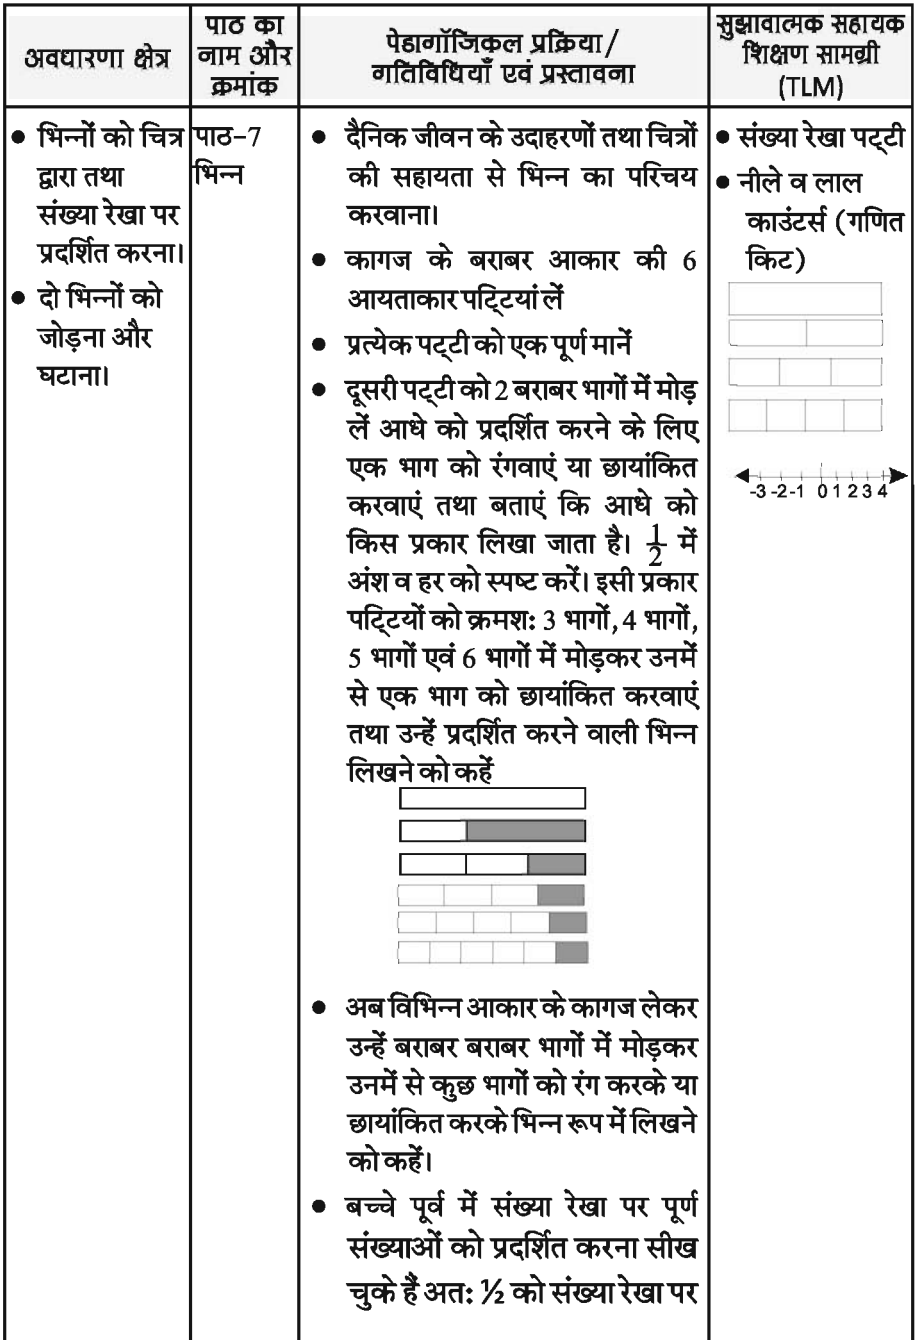 अवधारणा क्षेत्र
पाठ का
नाम और
क्रमांक
पेडागॉजिकल प्रक्रिया/
गतिविधियाँ एवं प्रस्तावना
सुझावात्मक सहायक
शिक्षण सामग्री
(TLM)
● भिन्नों को चित्र
द्वारा तथा
संख्या रेखा पर
प्रदर्शित करना।
● दो भिन्नों को
जोड़ना और
घटाना।
पाठ-7
भिन्न
● दैनिक जीवन के उदाहरणों तथा चित्रों
की सहायता से भिन्न का परिचय
करवाना।
● कागज के बराबर आकार की 6
आयताकार पट्टियां लें
● प्रत्येक पट्टी को एक पूर्ण मानें
● दूसरी पट्टी को 2 बराबर भागों में मोड़
लें आधे को प्रदर्शित करने के लिए
एक भाग को रंगवाएं या छायांकित
करवाएं तथा बताएं कि आधे को
किस प्रकार लिखा जाता है। 1/2 में
अंश व हर को स्पष्ट करें। इसी प्रकार
पट्टियों को क्रमश: 3 भागों, 4 भागों,
5 भागों एवं 6 भागों में मोड़कर उनमें
से एक भाग को छायांकित करवाएं
तथा उन्हें प्रदर्शित करने वाली भिन्न
लिखने को कहें
● अब विभिन्न आकार के कागज लेकर
उन्हें बराबर बराबर भागों में मोड़कर
उनमें से कुछ भागों को रंग करके या
छायांकित करके भिन्न रूप में लिखने
को कहें।
● बच्चे पूर्व में संख्या रेखा पर पूर्ण
संख्याओं को प्रदर्शित करना सीख
चुके हैं अत: ½ को संख्या रेखा पर
● संख्या रेखा पट्टी
● नीले व लाल
काउंटर्स (गणित
किट)
-3 -2 -1 0 1 2 3 4